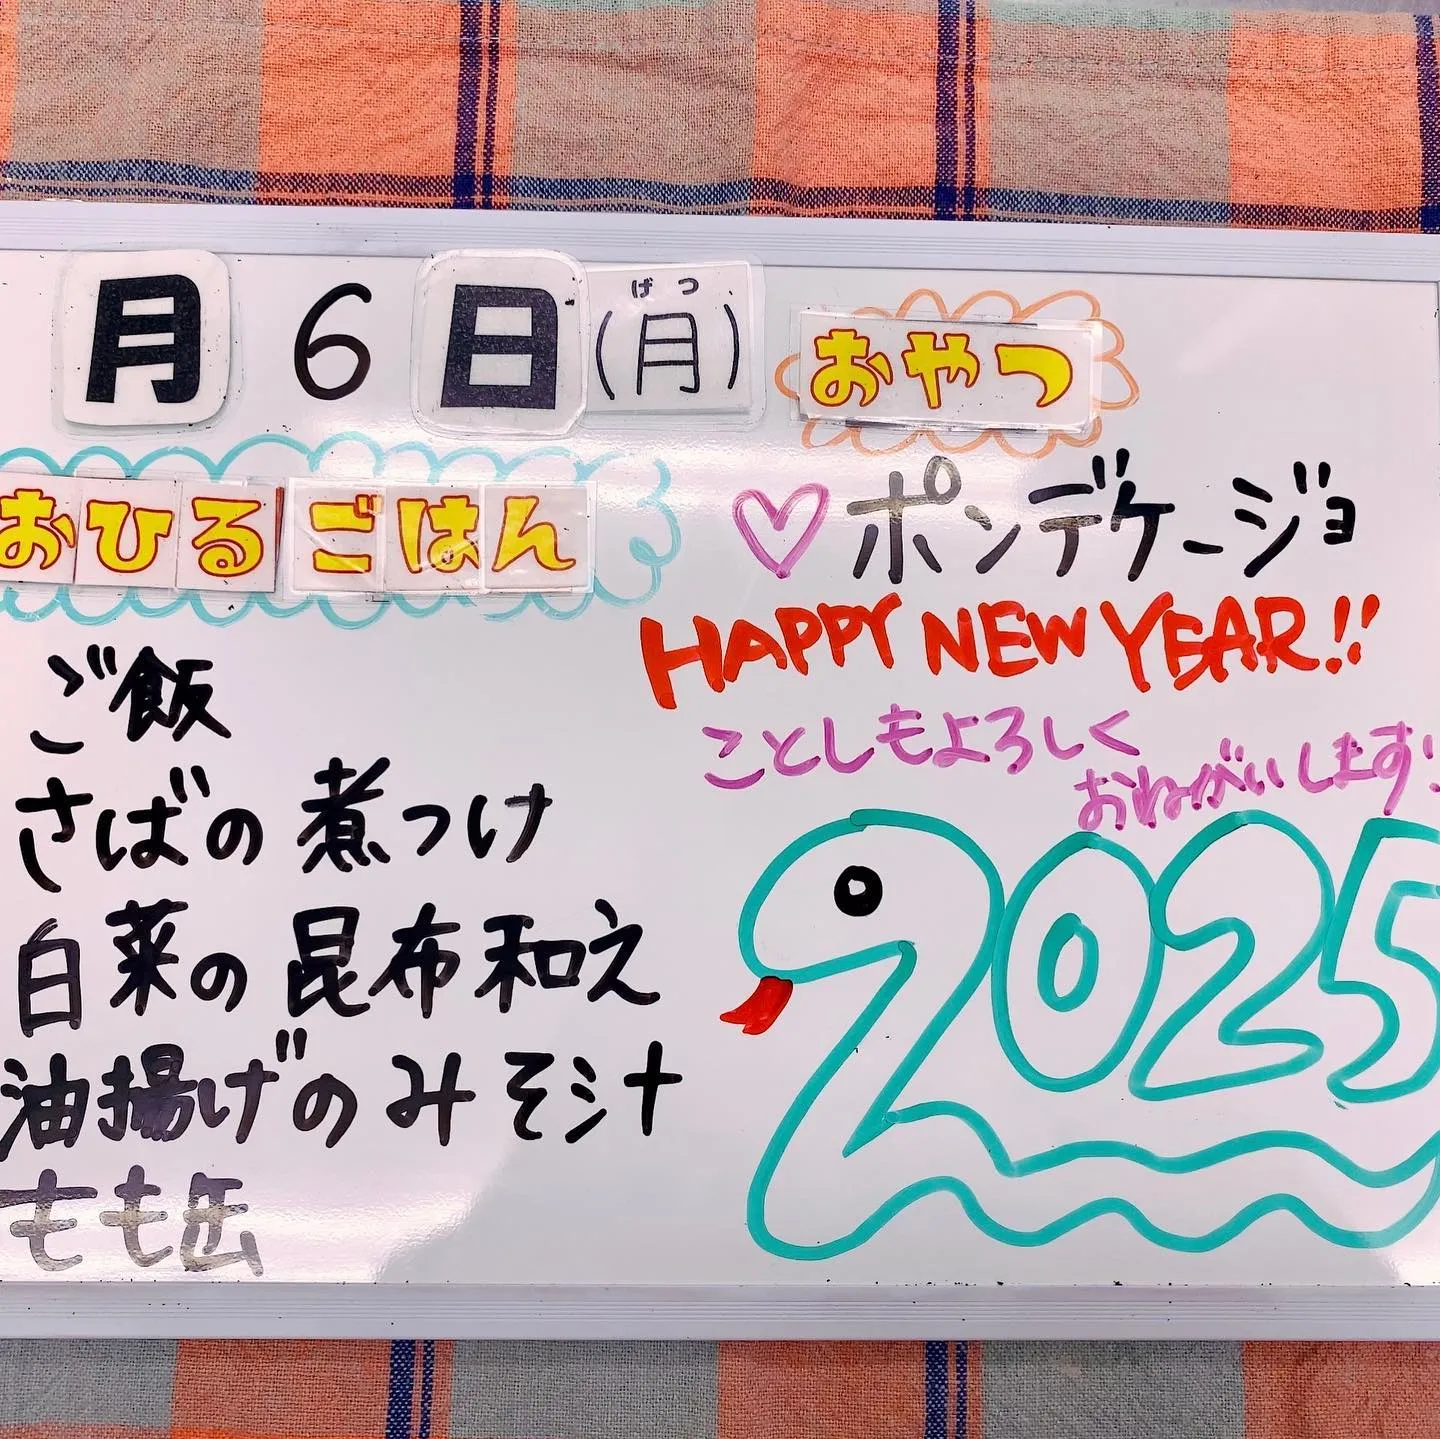 月 6 日 (月)
げつ
おやつ
おひるごはん
♡ポンデケージョ
HAPPY NEW YEAR!!
ことしもよろしく
おねがいします!
ご飯
さばの煮つけ
白菜の昆布和え
油揚げのみそ汁
もも缶
2025